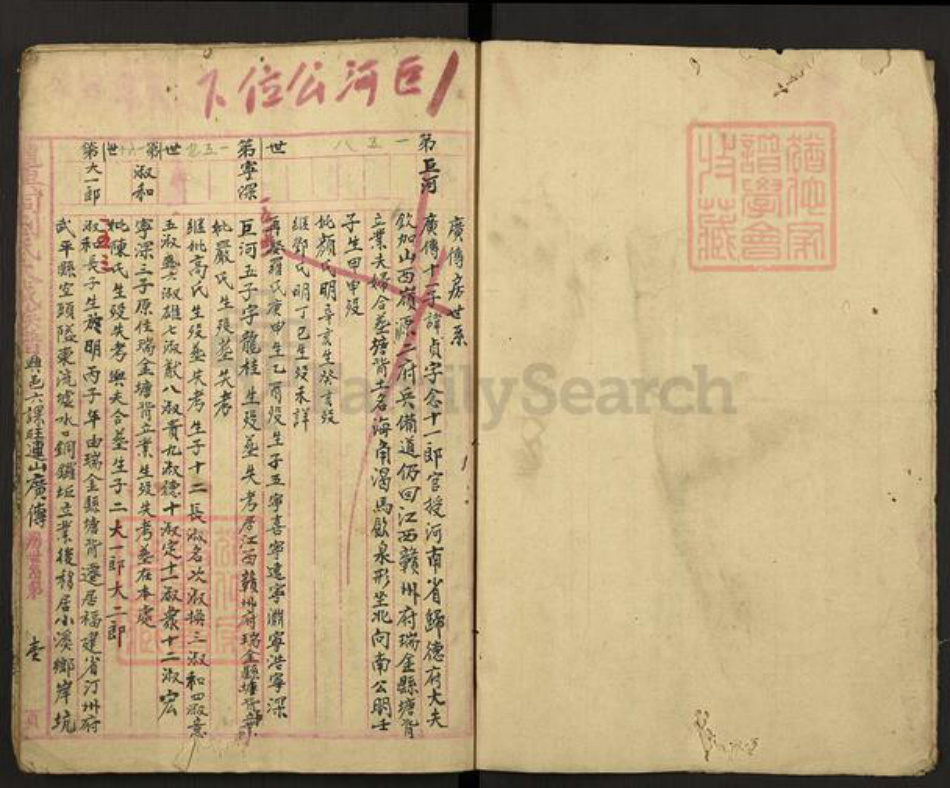 巨河公位下
廣傳房世系
第一五八世
巨河
廣傳十一子諱貞字念十一郎官授河南省歸德府大夫
欽加山西嶺源二府兵備道仍回江西贛州府瑞金縣塘背
立業夫婦合塟塘背土名海角渴馬飲泉形坐北向南公明壬
子生甲申歿
妣顏氏明辛亥生癸亥歿
繼鄧氏明丁巳生歿未詳
再娶羅氏庚申生乙酉歿生子五寧喜寧遠寧淵寧浩寧深
第一五九世
寧深
巨河五子字龍桂生歿塟失考居江西贛州府瑞金縣塘背
妣嚴氏生歿塟失考
繼妣高氏生歿塟失考生子十二長淑名次淑換三淑和四淑意
五淑盛六淑雄七淑猷八淑貴九淑德十淑定十一淑衆十二淑宏
第世
淑和
寧深三子原住瑞金塘背立業生歿失考塟在本處
妣陳氏生歿失考與夫合塟生子二大一郎大二郎
第
大一郎
淑和長子生於明丙子年由瑞金縣塘背遷居福建省汀州府
武平縣空頭隘東流墟水口銅鑼坵立業後移居小溪鄉岸坑
興邑六課旺連山廣傳房世系第 壹 頁
猶他家譜學會收藏
FamilySearch